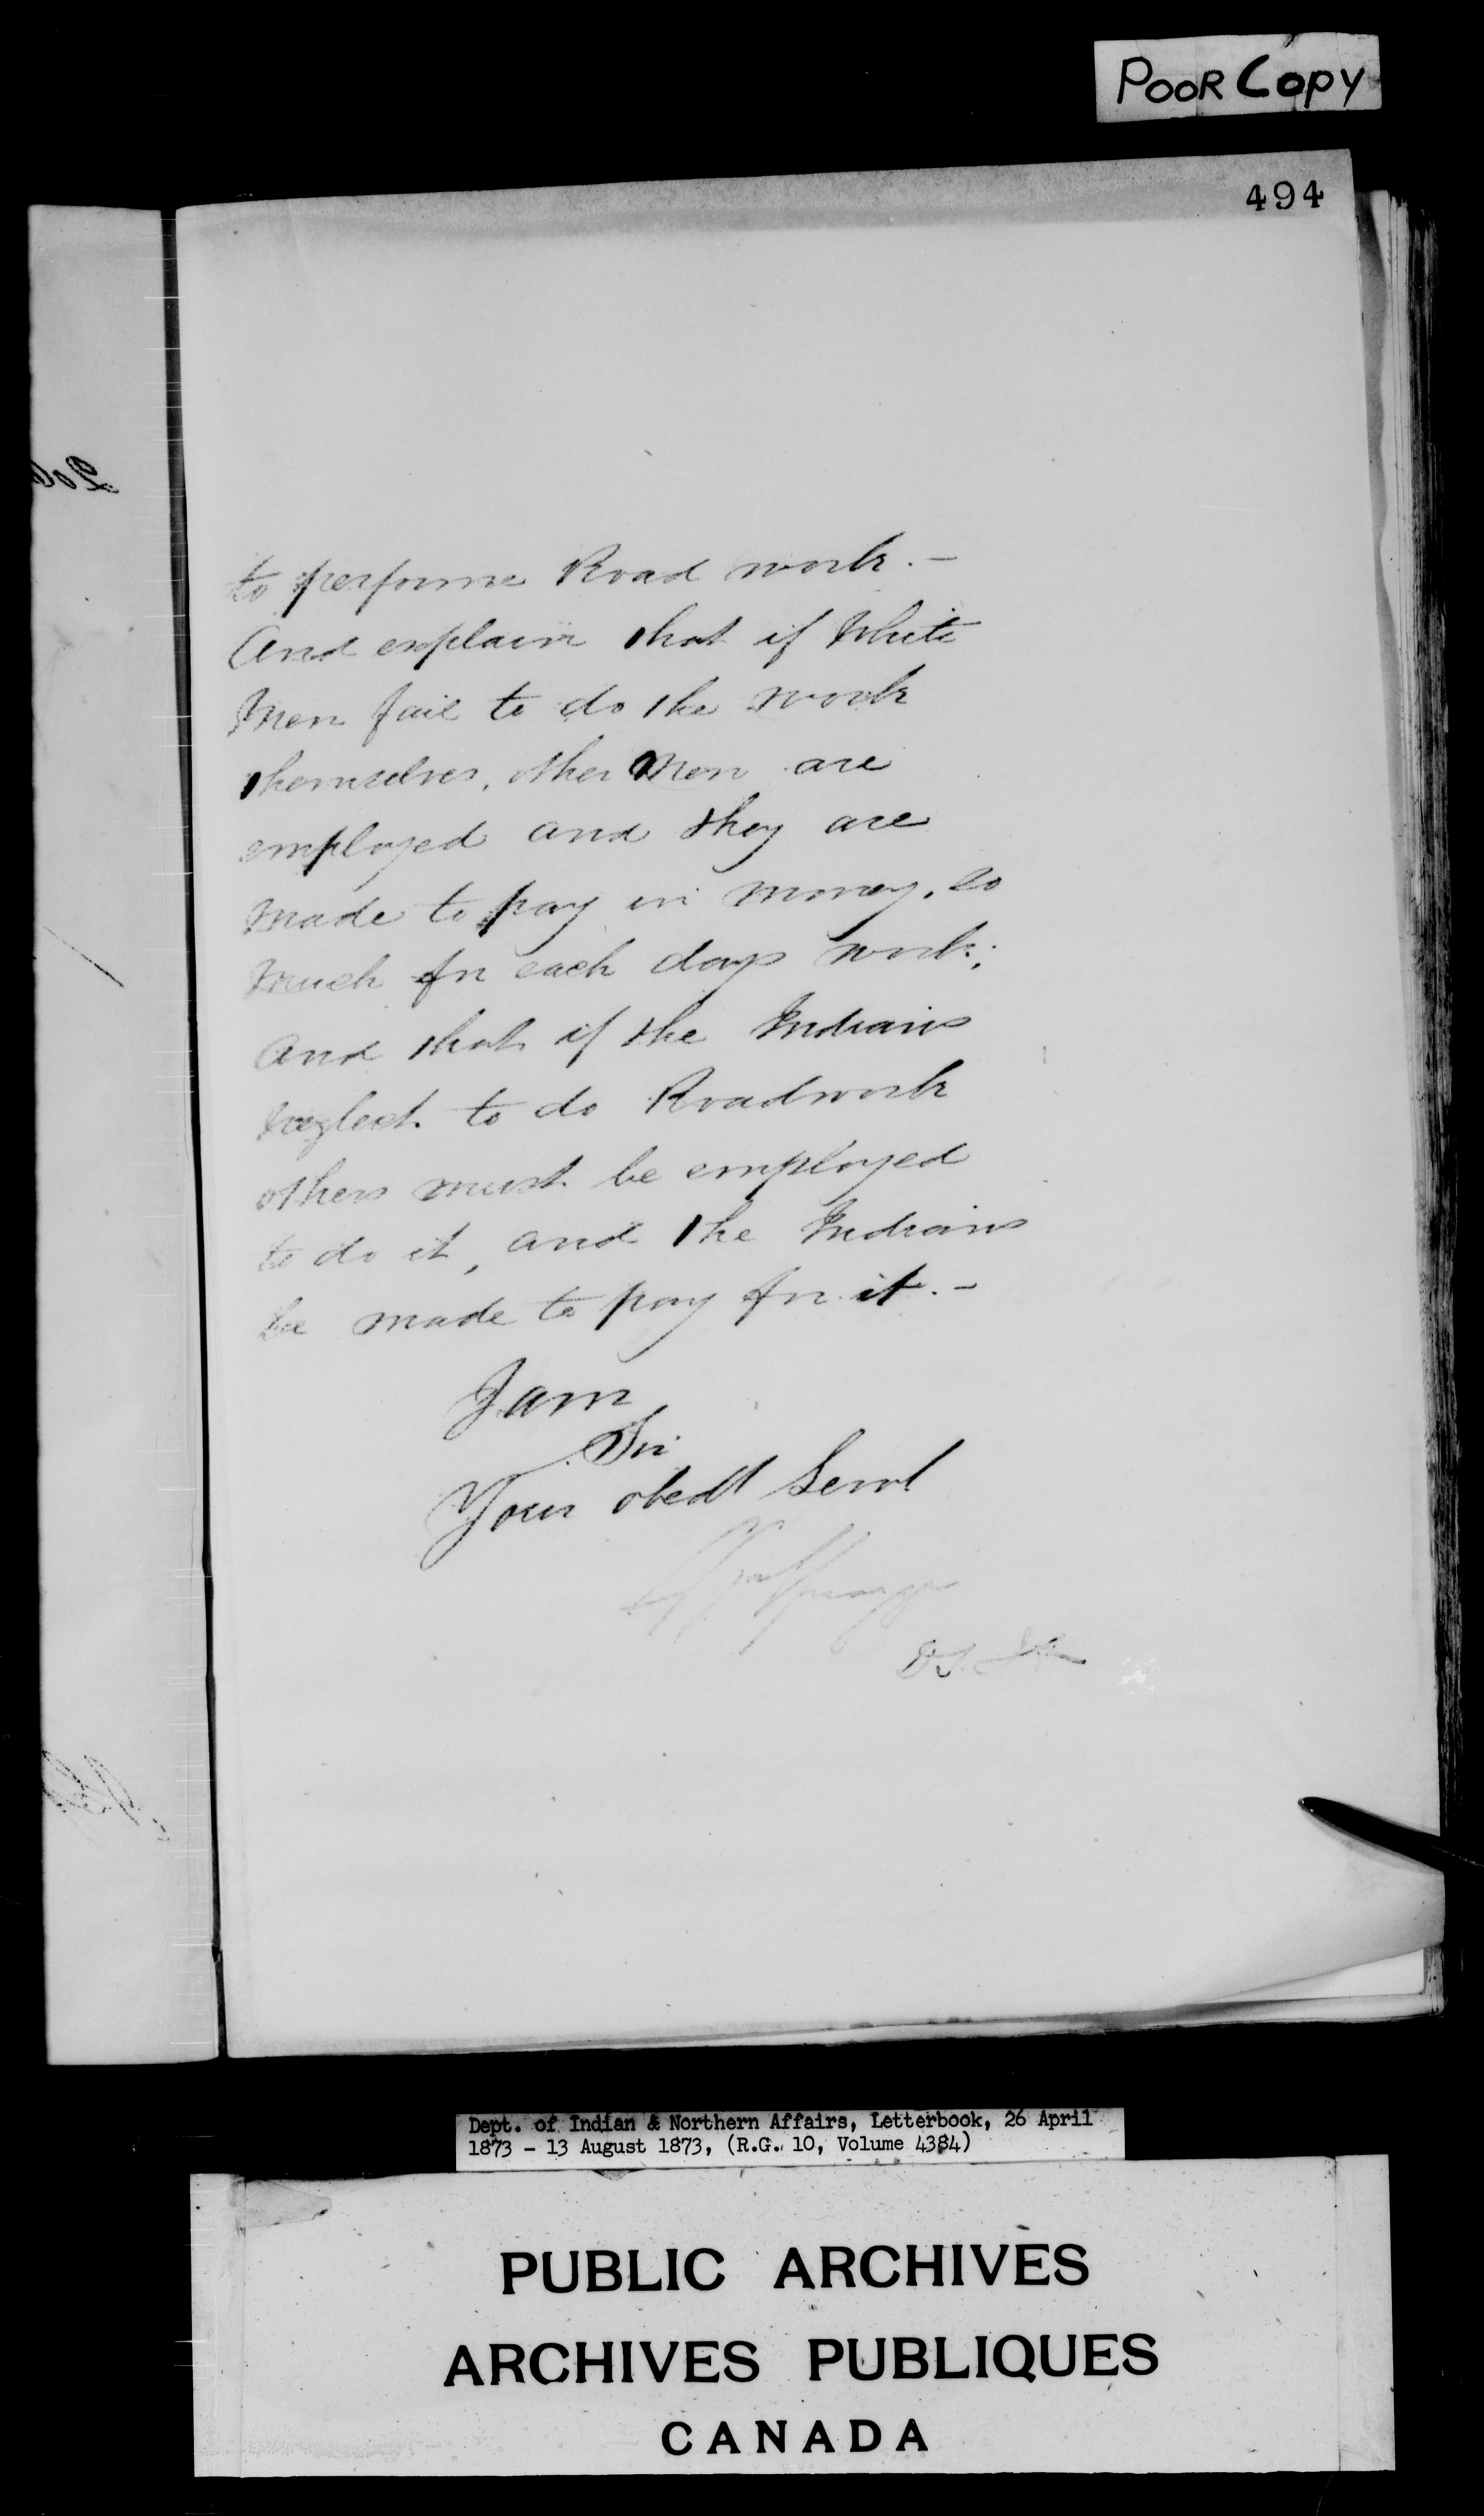 POOR COPY
494
to performe Road work. —
And explain that if White
Men fail to do the work
themselves, other Men are
employed and they are
made to pay in money, so
much for each days work;
And that if the Indians
neglect to do Roadwork
others must be employed
to do it, and the Indians
be made to pay for it. —
I am
Sir
Your obedt Servt
Dept. of Indian & Northern Affairs, Letterbook, 26 April
1873 - 13 August 1873, (R.G. 10, Volume 4384)
PUBLIC ARCHIVES
ARCHIVES PUBLIQUES
CANADA